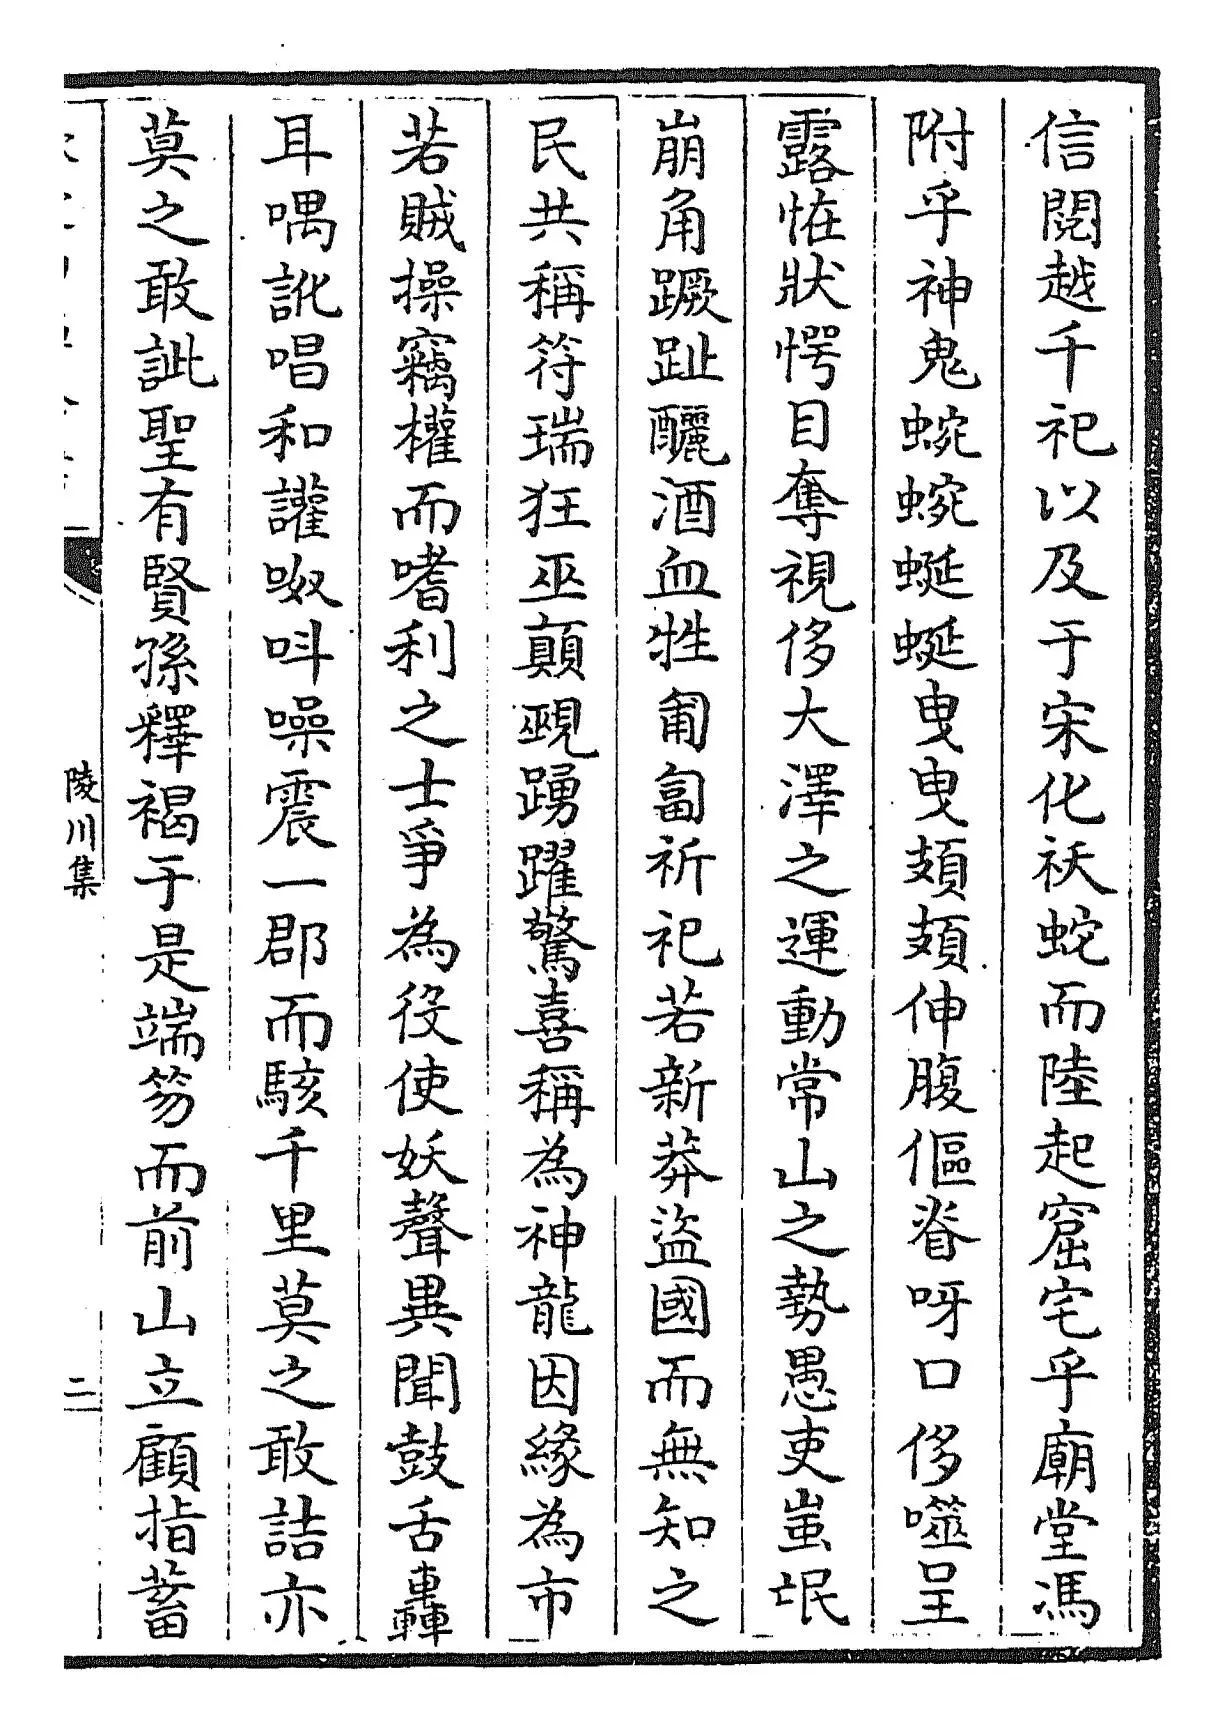 信閱越千祀以及于宋化祅蛇而陸起窟宅乎廟堂馮
附乎神鬼蜿蜿蜒蜒曳曳頞頞伸腹傴脊呀口侈噬呈
露恠狀愕目奪視侈大澤之運動常山之勢愚吏蚩氓
崩角蹶趾釃酒血牲匍匐祈祀若新莽盜國而無知之
民共稱符瑞狂巫顛覡踴躍驚喜稱為神龍因緣為市
若賊操竊權而嗜利之士爭為役使妖聲異聞鼓舌轟
耳喁訛唱和讙呶呌噪震一郡而駭千里莫之敢詰亦
莫之敢訿聖有賢孫釋褐于是端笏而前山立顧指蓄
陵川集
二